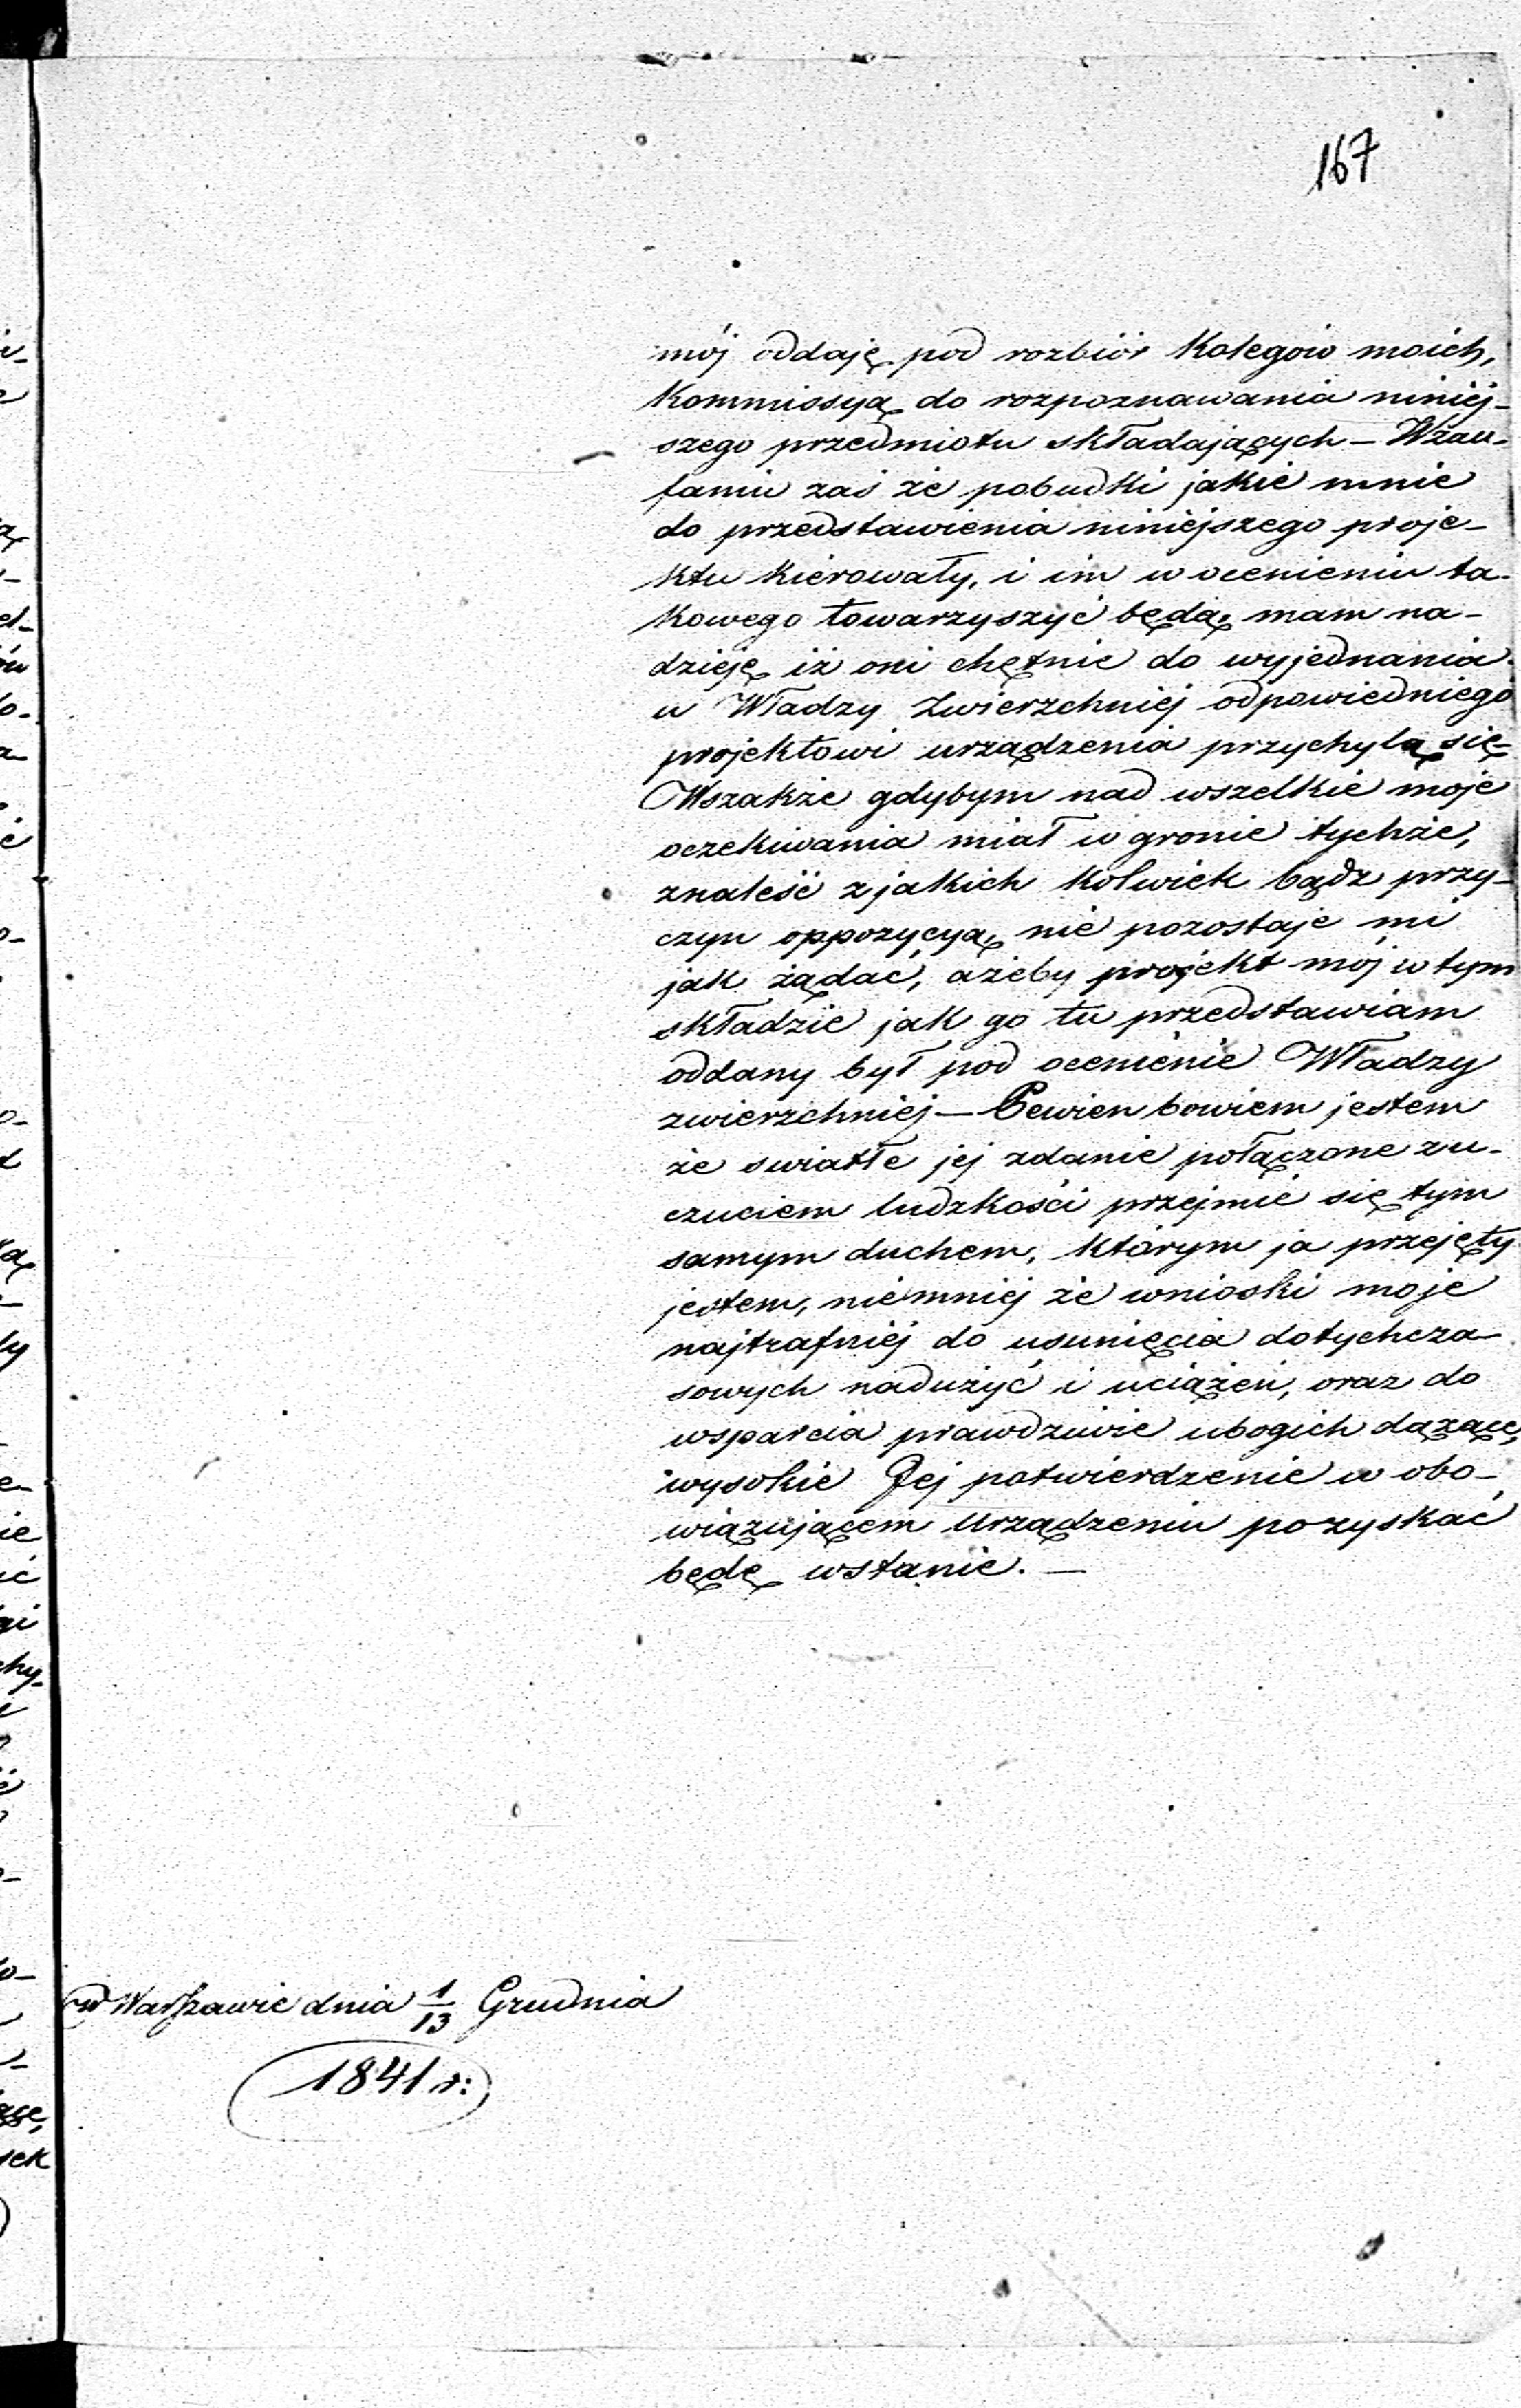 167
mój oddaję pod rozbiór Kolegów moich,
Kommissyą do rozpoznawania niniéj-
szego przedmiotu składających – W zau-
faniu zaś że pobudki jakie mnie
do przedstawienia niniejszego proje-
ktu kierowały, i im w ocenieniu ta-
kowego towarzyszyć będą, mam na-
dzieję iż oni chętnie do wyjednania
u Władzy Zwierzchniéj odpowiedniego
projektowi urządzenia przychylą się
Wszakże gdybym nad wszelkie moje
oczekiwania miał w gronie tychże,
znaleść z jakich kolwiek bądź przy-
czyn oppozycyą, nie pozostaje mi
jak żądać, ażeby projekt mój w tym
składzie jak go tu przedstawiam
oddany był pod ocenienie Władzy
zwierzchniéj – Pewien bowiem jestem
że swiatłe jéj zdanie połączone z u-
czuciem ludzkości przejmie się tym
samym duchem, którym ja przejęty
jestem, niemniéj że wnioski moje
najtrafniéj do usunięcia dotychcza-
sowych nadużyć i uciążeń, oraz do
wsparcia prawdziwie ubogich dążące,
wysokie Jéj potwierdzenie w obo-
wiązującem Urządzeniu pozyskać
będę wstanie. –
w Warszawie dnia 1/13 Grudnia
1841 r: